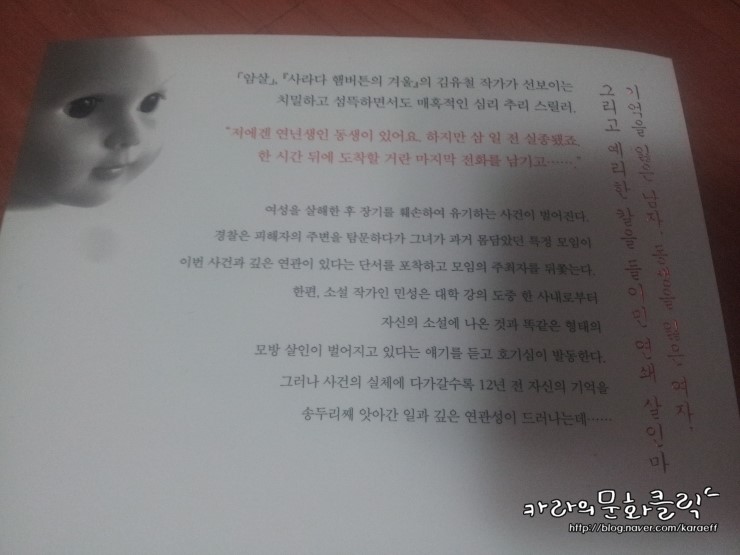 『암살』, 『사라다 햄버튼의 겨울』의 김유철 작가가 선보이는
치밀하고 섬뜩하면서도 매혹적인 심리 추리 스릴러.
"저에겐 연년생인 동생이 있어요. 하지만 삼 일 전 실종됐죠.
한 시간 뒤에 도착할 거란 마지막 전화를 남기고……."
여성을 살해한 후 장기를 훼손하여 유기하는 사건이 벌어진다.
경찰은 피해자의 주변을 탐문하다가 그녀가 과거 몸담았던 특정 모임이
이번 사건과 깊은 연관이 있다는 단서를 포착하고 모임의 주최자를 뒤쫓는다.
한편, 소설 작가인 민성은 대학 강의 도중 한 사내로부터
자신의 소설에 나온 것과 똑같은 형태의
모방 살인이 벌어지고 있다는 얘기를 듣고 호기심이 발동한다.
그러나 사건의 실체에 다가갈수록 12년 전 자신의 기억을
송두리째 앗아간 일과 깊은 연관성이 드러나는데……
기억을 잃은 남자, 목숨을 잃은 여자,
그리고 예리한 칼을 들이민 연쇄 살인마
카라의문화클릭
http://blog.naver.com/karaeff